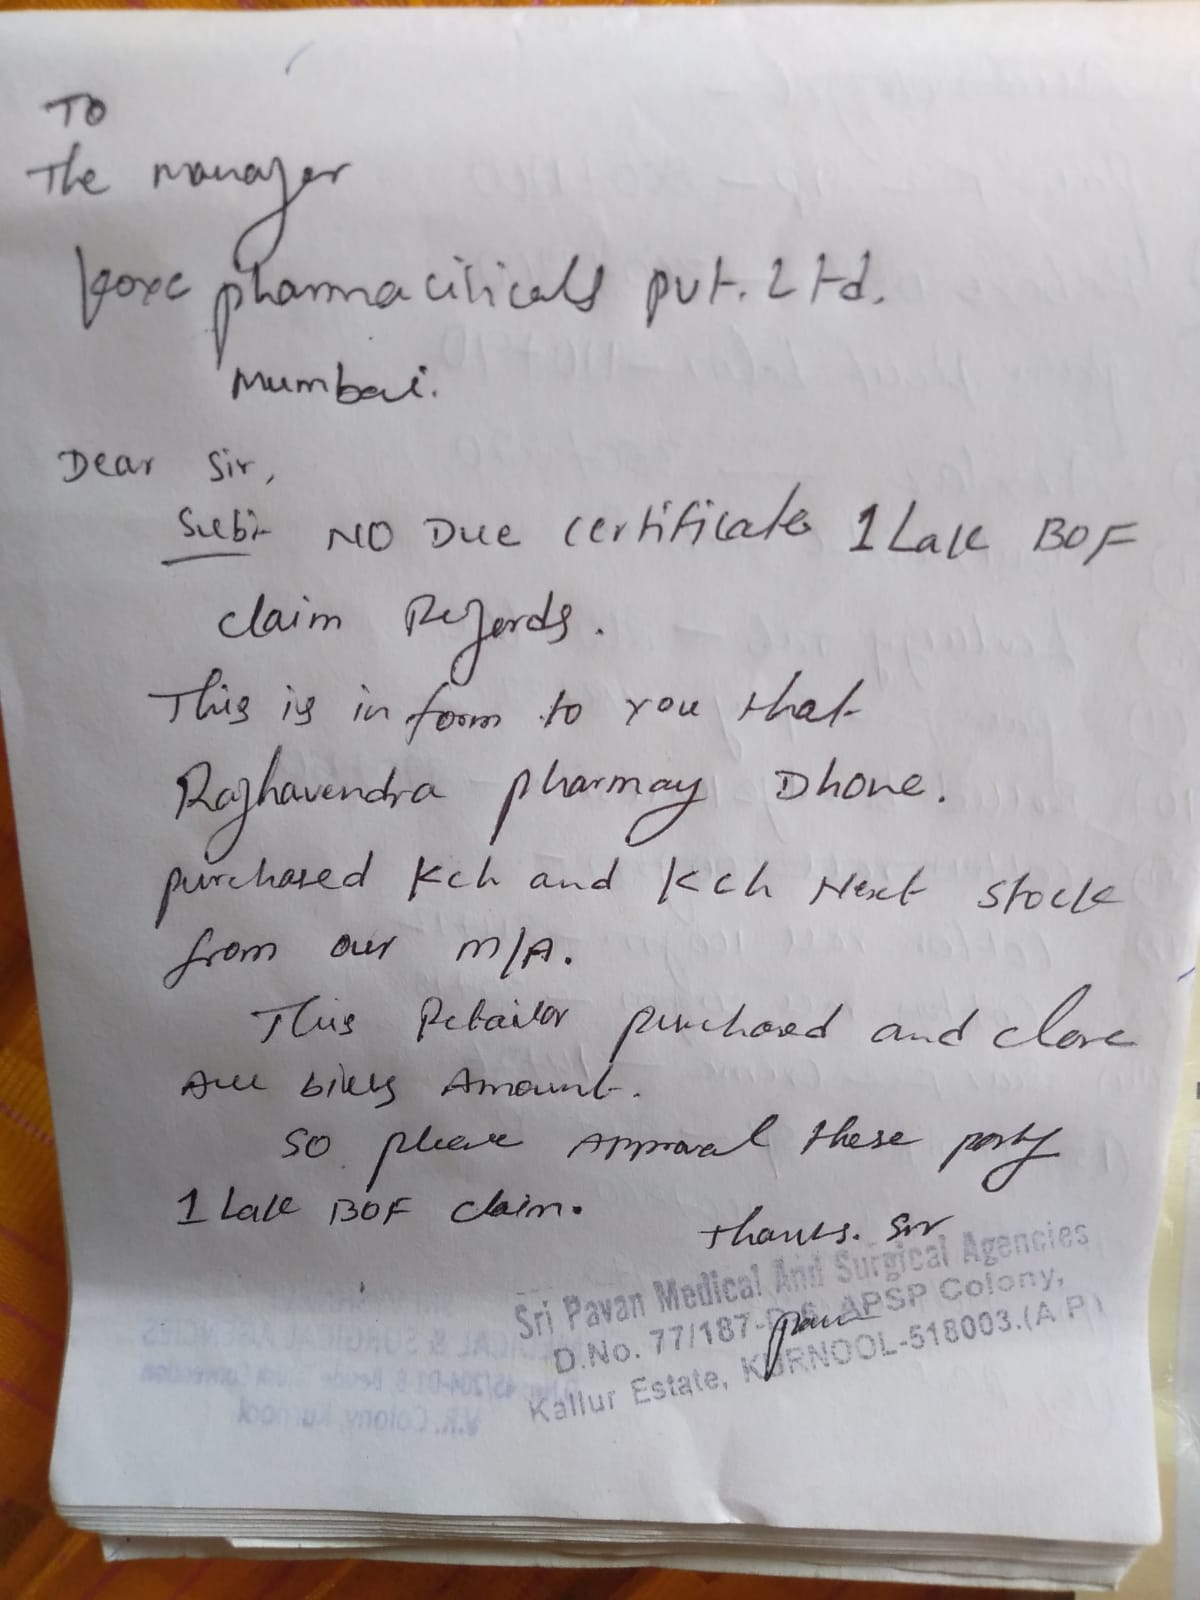 TO
The manager
pharmacilicals pvt. Ltd.
Mumbai.
Dear Sir,
Sub:- NO Due certificate 1 Lak BOF
claim Regards.
This is in form to you that
Raghavendra pharmay Dhone.
purchased Kch and Kch Next stock
from our M/A.
This Retailor purchased and close
All bills Amount.
So please Approval these party
1 Lak BOF claim.
Thanks. Sir
Sri Pavan Medical And Surgical Agencies
D.No. 77/187- APSP Colony,
Kallur Estate, KURNOOL-518003.(A.P.)